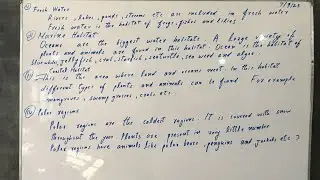 Fresh Water
7/9/23
Rivers, lakes, ponds, streams etc are included in fresh water
Fresh water is the habitat of frogs, fishes and lilies
Marine Habitat
Oceans are the biggest water habitats. A large variety of
plants and animals are found in this habitat. Ocean is the habitat of
sharks, jellyfish, coral, starfish, sea turtle, sea weed and algae.
Coastal Habitat
This is the area where land and oceans meet in this habitat
different types of plants and animals can be found For example
mangroves, swamp grasses, corals etc.
Polar regions
Polar regions are the coldest regions. It is covered with snow
throughout the year. Plants are present in very little number
Polar regions have animals like polar bears, penguins and jackals etc